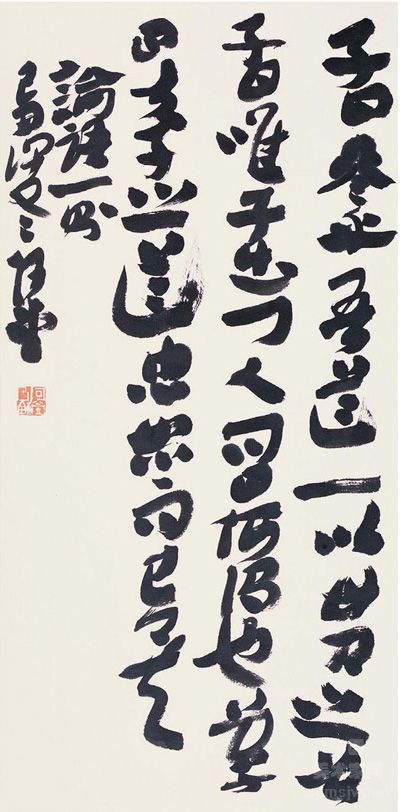 子曰參乎吾道一以貫之曾
子曰唯子出门人問曰何谓也曾子
曰夫子之道忠恕而已矣
論語一則